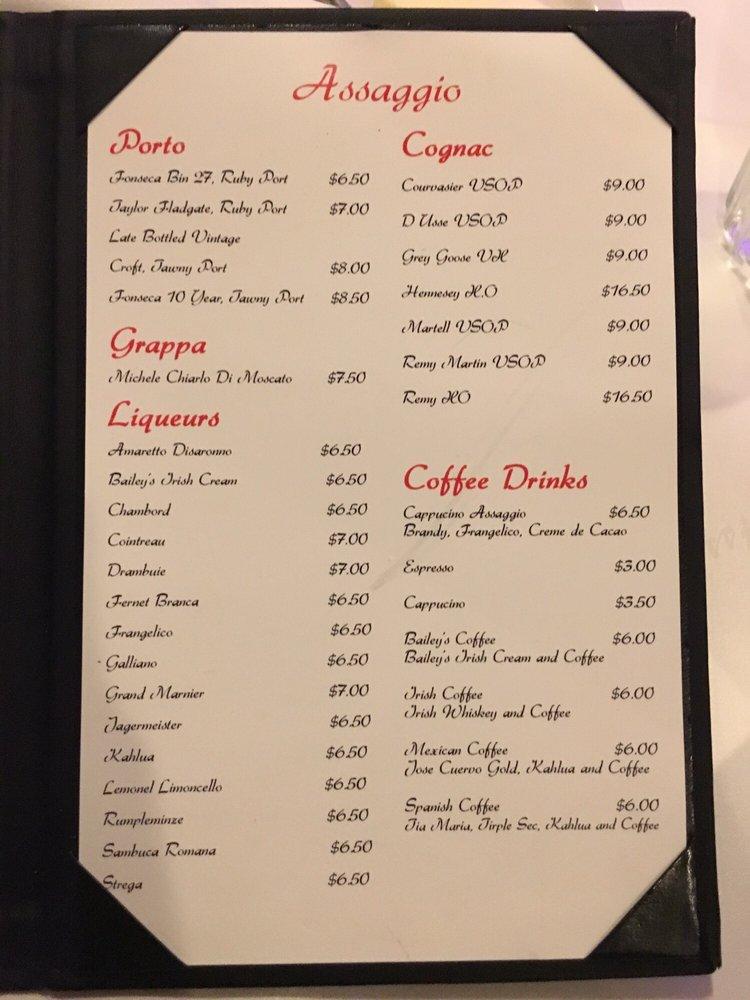 Assaggio
Porto
Fonseca Bin 27, Ruby Port $6.50
Taylor Fladgate, Ruby Port $7.00
Late Bottled Vintage
Croft, Tawny Port $8.00
Fonseca 10 Year, Tawny Port $8.50
Grappa
Michele Chiarlo Di Moscato $7.50
Liqueurs
Amaretto Disaronno $6.50
Bailey's Irish Cream $6.50
Chambord $6.50
Cointreau $7.00
Drambuie $7.00
Fernet Branca $6.50
Frangelico $6.50
Galliano $6.50
Grand Marnier $7.00
Jagermeister $6.50
Kahlua $6.50
Lemonel Limoncello $6.50
Rumpleminze $6.50
Sambuca Romana $6.50
Strega $6.50
Cognac
Courvasier VSOP $9.00
D Usse VSOP $9.00
Grey Goose VX $9.00
Hennesey X.O $16.50
Martell VSOP $9.00
Remy Martin VSOP $9.00
Remy XO $16.50
Coffee Drinks
Cappucino Assaggio $6.50
Brandy, Frangelico, Creme de Cacao
Espresso $3.00
Cappucino $3.50
Bailey's Coffee $6.00
Bailey's Irish Cream and Coffee
Irish Coffee $6.00
Irish Whiskey and Coffee
Mexican Coffee $6.00
Jose Cuervo Gold, Kahlua and Coffee
Spanish Coffee $6.00
Tia Maria, Tirple Sec, Kahlua and Coffee